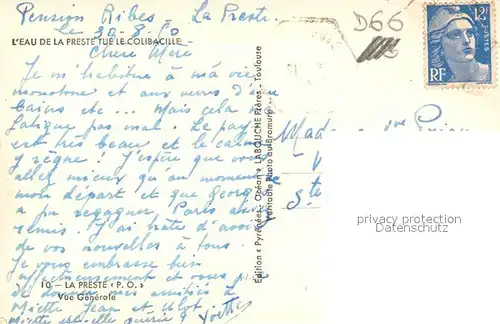 Pension Ribes La Preste
Le 30-8-50
L'EAU DE LA PRESTE TUE LE COLIBACILLE
Chère Mère
Je m'habitue à ma vie
monotone et aux verres d'eau
bains etc... Mais cela me
fatigue pas mal. Le pays
est très beau et le calme
y règne! J'espère que vous
allez mieux qu'au moment de
mon départ et que George
a pu regagner Paris
remis. J'ai hâte d'avoir
de vos nouvelles à tous.
Je vous embrasse bien
affectueusement et vous
10 - LA PRESTE « P. O. »
de mes amitiés à
Vue Générale
Miette Jean et
Miette est-elle guérie? Yvette
Edition « Pyrénées - Océan » LABOUCHE Frères - Toulouse
Véritable Photo au Bromure
D66
12F
POSTES
RF
Madame Vve
V
Ste
privacy protection
Datenschutz